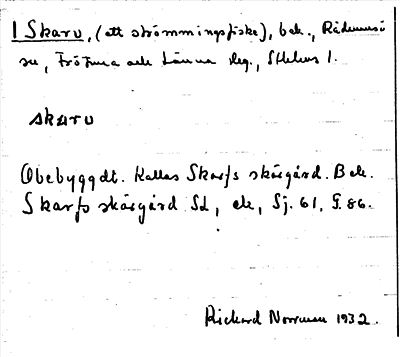 1 Skarv, (ett strömmingsfiske), bek., Rådmansö
sn, Frötuna och Länna slg., Sthlms l.
skarv
Obebyggdt. Kallas Skarfs skärgård. Bek.
Skarfs skärgård Sd, ek, Sj. 61, G. 86.
Rickard Norrman 1932.